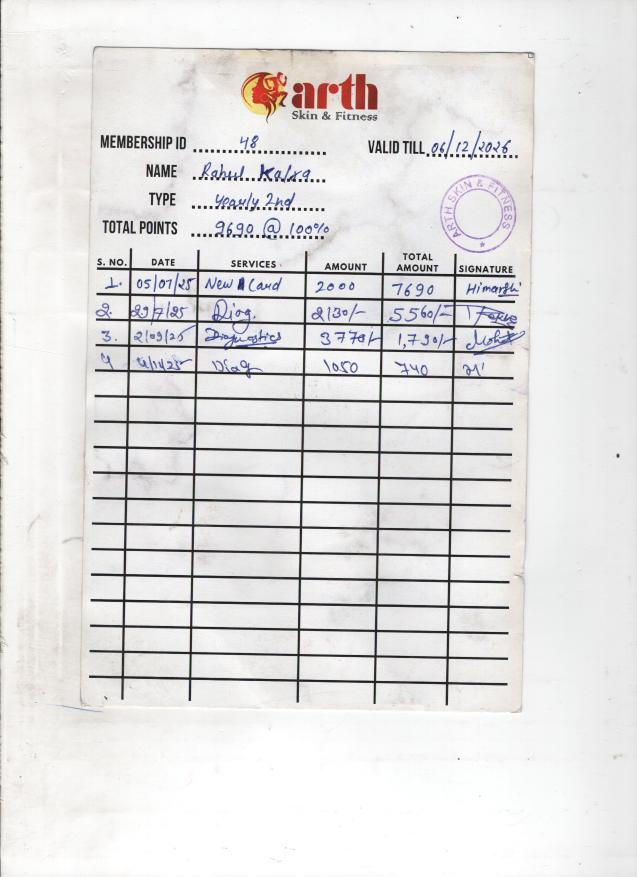 arth
Skin & Fitness
MEMBERSHIP ID 48 VALID TILL 06/12/2026
NAME Rahul Kalra
TYPE Yearly 2nd
TOTAL POINTS 9690 @ 100%
ARTH SKIN & FITNESS
S. NO. DATE SERVICES AMOUNT TOTAL AMOUNT SIGNATURE
1. 05/07/25 New Card 2000 7690 Himanshi
2. 29/7/25 Diag. 2130/- 5560/-
3. 2/09/25 Diagnostics 3770/- 1,790/- Mohit
4 Diag 1050 740